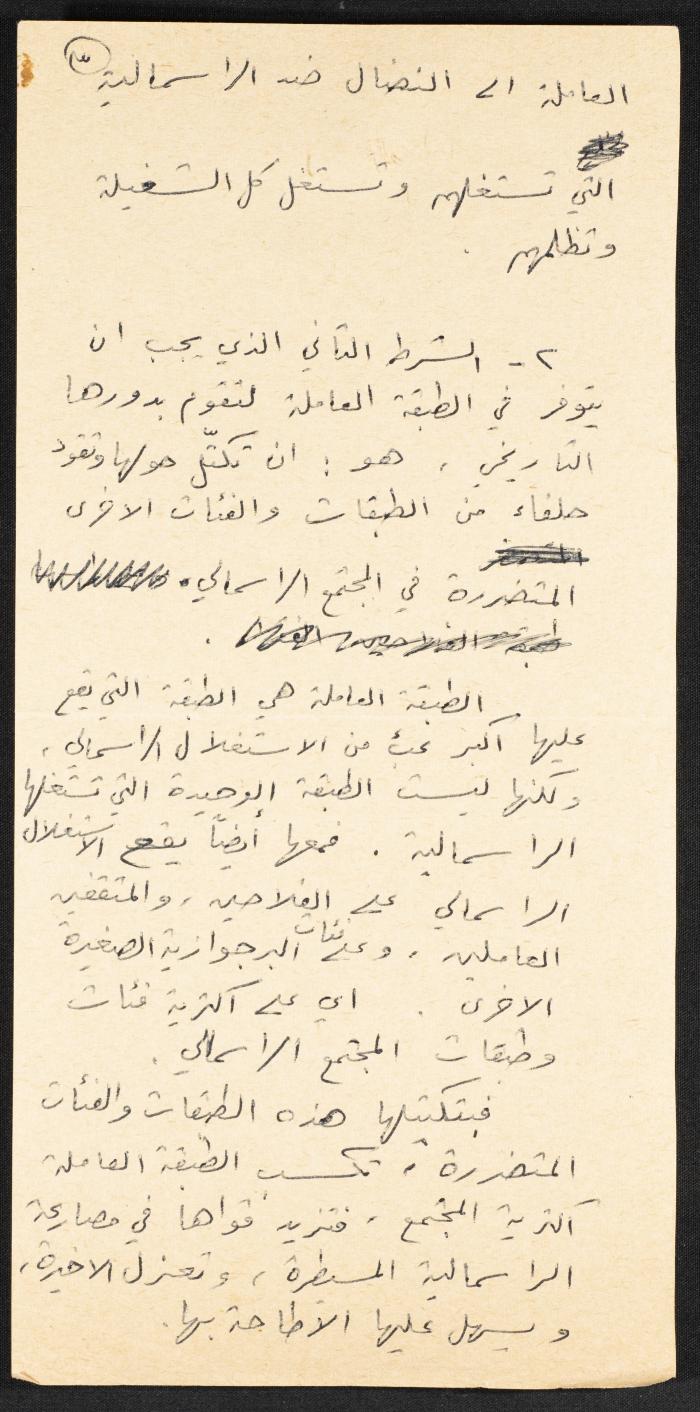 ٣
العاملة الى النضال ضد الراسمالية
التي تستغلهم وتستغل كل الشغيلة
وتظلمهم .
٢ - الشرط الثاني الذي يجب ان
يتوفر في الطبقة العاملة لتقوم بدورها
التاريخي ، هو : ان تكتّل حولها وتقود
حلفاء من الطبقات والفئات الاخرى
المتضررة في المجتمع الراسمالي .
الطبقة العاملة هي الطبقة التي يقع
عليها اكبر عبء من الاستغلال الراسمالي ،
ولكنها ليست الطبقة الوحيدة التي تستغلها
الراسمالية . فمعها أيضاً يقع الاستغلال
الراسمالي على الفلاحين ، والمثقفين
العاملين ، وعلى فئات البرجوازية الصغيرة
الاخرى . اي على اكثرية فئات
وطبقات المجتمع الراسمالي .
فبتكتيلها هذه الطبقات والفئات
المتضررة ، تكسب الطبقة العاملة
اكثرية المجتمع ، فتزيد قواها في مصارعة
الراسمالية المسيطرة ، وتعزل الاخيرة ،
ويسهل عليها الاطاحة بها .